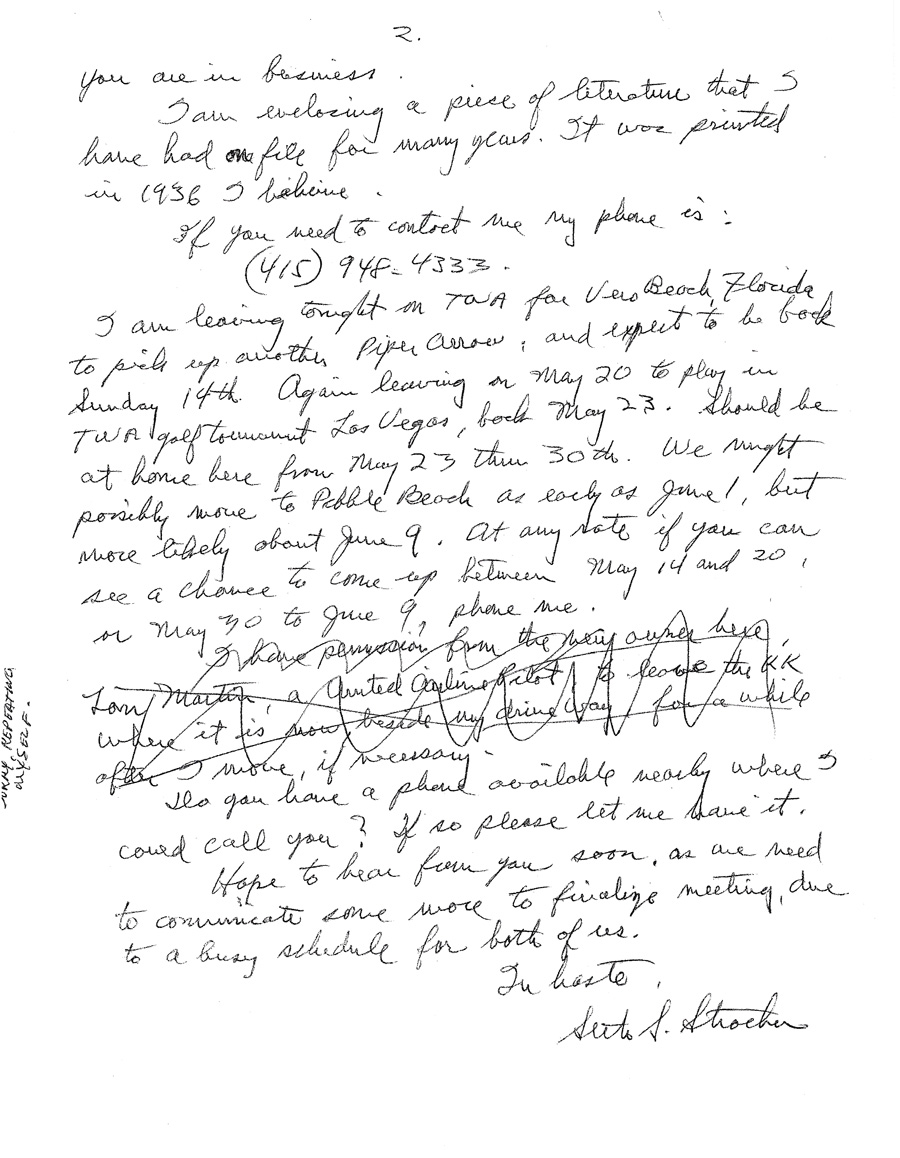 2.
you are in business.
I am enclosing a piece of literature that I
have had on file for many years. It was printed
in 1936 I believe.
If you need to contact me my phone is:
(415) 948-4333.
I am leaving tonight on TWA for Vero Beach, Florida
to pick up another Piper Arrow, and expect to be back
Sunday 14th. Again leaving on May 20 to play in
TWA golf tournament Las Vegas, back May 23. Should be
at home here from May 23 thru 30th. We might
possibly move to Pebble Beach as early as June 1, but
more likely about June 9. At any rate if you can
see a chance to come up between May 14 and 20,
or May 30 to June 9, phone me.
I have permission from the new owner here,
Martin, a United Airline Pilot, to leave the KK
where it is now, beside my driveway for a while
after I move, if necessary.
Do you have a phone available nearby where I
could call you? If so please let me have it.
Hope to hear from you soon, as we need
to communicate some more to finalize meeting, due
to a busy schedule for both of us.
In haste,
S.
REPEATING
MYSELF.